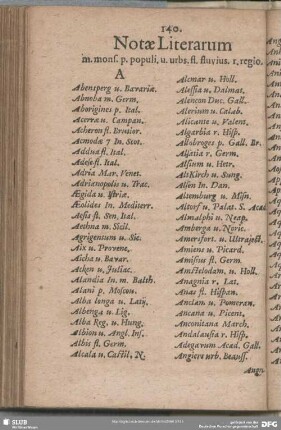 140.
Notæ Literarum
m. mons. p. populi, u. urbs. fl. fluvius. r. regio.
A
Abensperg u. Bavariæ.
Abnoba m. Germ.
Aborigines p. Ital.
Acerra u. Campan.
Acheron fl.
Acmoda 7 In. Scot.
Addua fl. Ital.
Adese fl. Ital.
Adria Mar. Venet.
Adrianopolis u. Trac.
Ægida u. Istriæ.
Æolides In. Mediterr.
Aesis fl. Sen. Ital.
Aethna m. Sicil.
Agrigentum u. Sic.
Aix u. Provenc.
Aicha u. Bavar.
Aken u. Juliac.
Alandia In. m. Balth.
Alani p. Moscou.
Alba longa u. Latij.
Albenga u. Lig.
Alba Reg. u. Hung.
Albion u. Angl. Ins.
Albis fl. Germ.
Alcala u. Castil, N.
Alcmar u. Holl.
Alessia u. Dalmat.
Alencon Duc. Gall.
Alerium u. Calab.
Alicante u. Valent.
Algarbia r. Hisp.
Allobroges p. Gall. Br.
Alsatia r. Germ.
Alsium u. Hetr.
AltKirch u. Sung.
Alsen In. Dan.
Altemburg u. Misn.
Altorf u. Palat. S. Acad
Almalphi u. Neap.
Amberga u. Noric.
Amersfort. u. Ultraject.
Amiens u. Picard.
Amisius fl. Germ.
Amstelodam, u. Holl.
Anagnia r. Lat.
Anas fl. Hispan.
Anclam u. Pomeran.
Ancana u. Picent.
Anconitana March.
Andalusia r. Hisp.
Adegavum Acad. Gall.
Angiers urb. Beauss.
Angr.